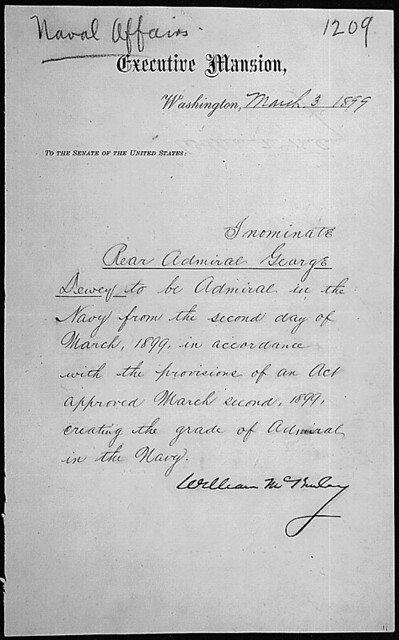 Naval Affairs.
1209.
Executive Mansion,
Washington, March 3 1899
TO THE SENATE OF THE UNITED STATES:
I nominate
Rear Admiral George
Dewey to be Admiral in the
Navy from the second day of
March, 1899, in accordance
with the provisions of an Act
approved March second, 1899,
creating the grade of Admiral
in the Navy.
William McKinley